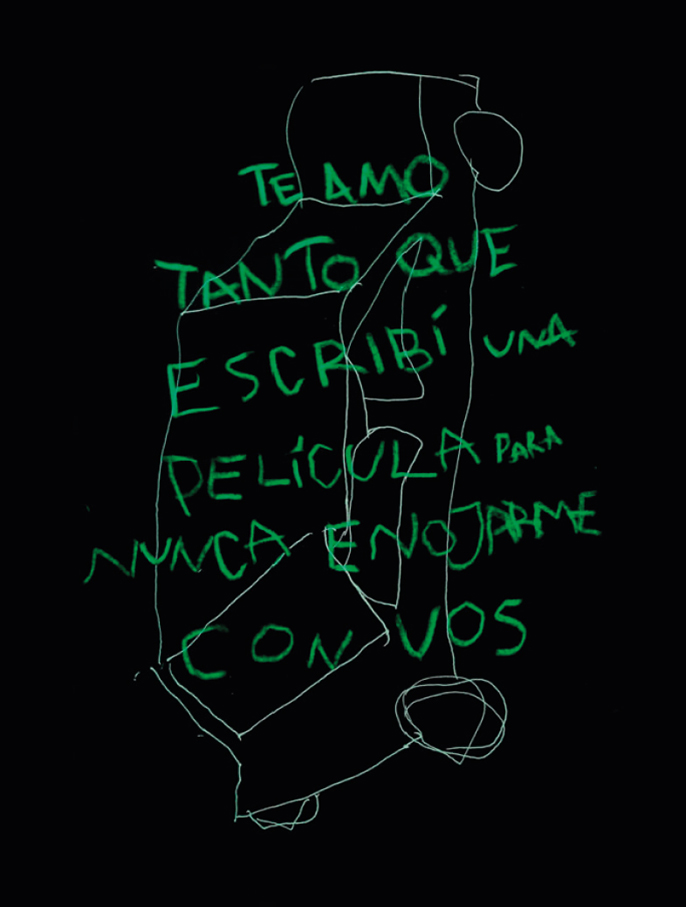 TE AMO
TANTO QUE
ESCRIBÍ UNA
PELÍCULA PARA
NUNCA ENOJARME
CON VOS